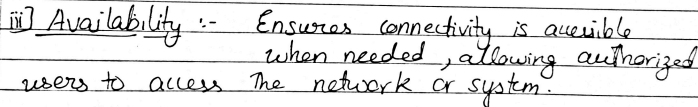 iii] Availability :- Ensures connectivity is accessible
when needed, allowing authorized
users to access the network or system.